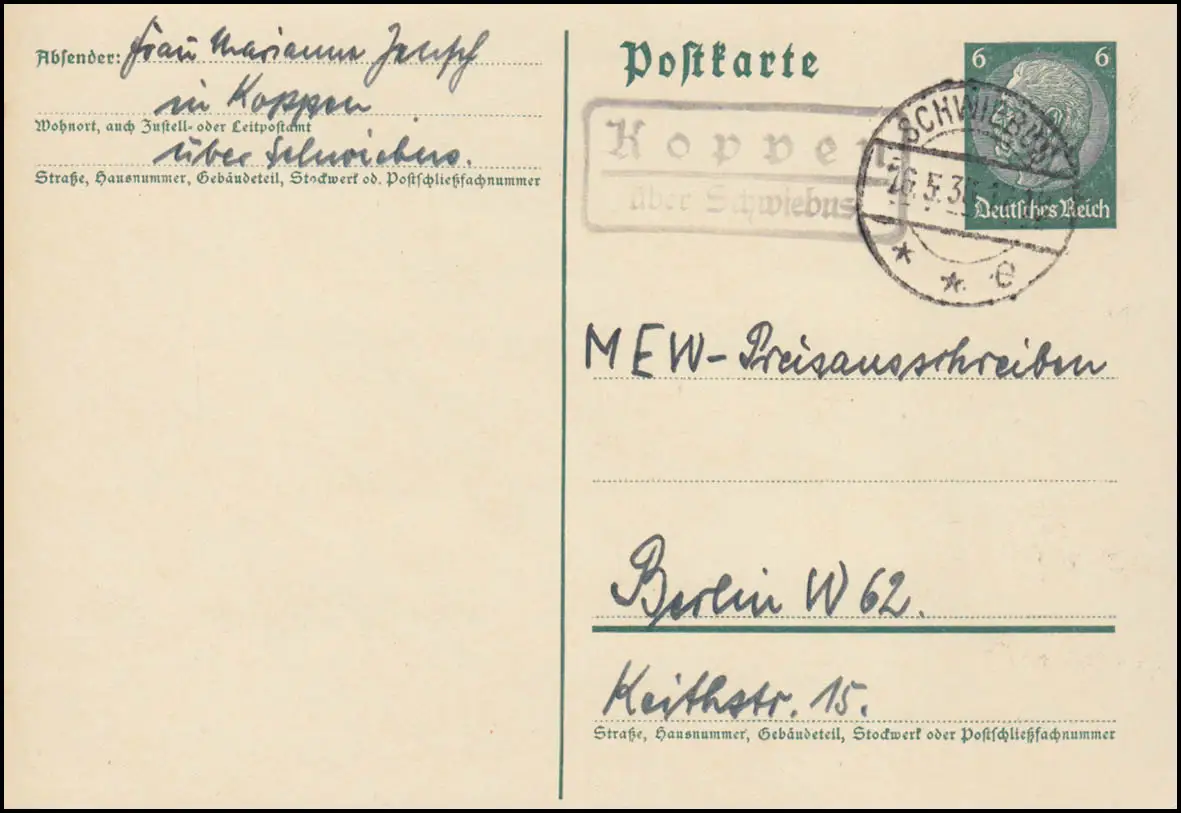 Absender: Frau Marianne Jensch
in Koppen
Wohnort, auch Zustell- oder Leitpostamt
über Schwiebus.
Straße, Hausnummer, Gebäudeteil, Stockwerk od. Postschließfachnummer
Postkarte
6 6
Deutsches Reich
Koppen
über Schwiebus
SCHWIEBUS
26.5.3
* * e
MEW-Preisausschreiben
Berlin W 62.
Keithstr. 15.
Straße, Hausnummer, Gebäudeteil, Stockwerk oder Postschließfachnummer